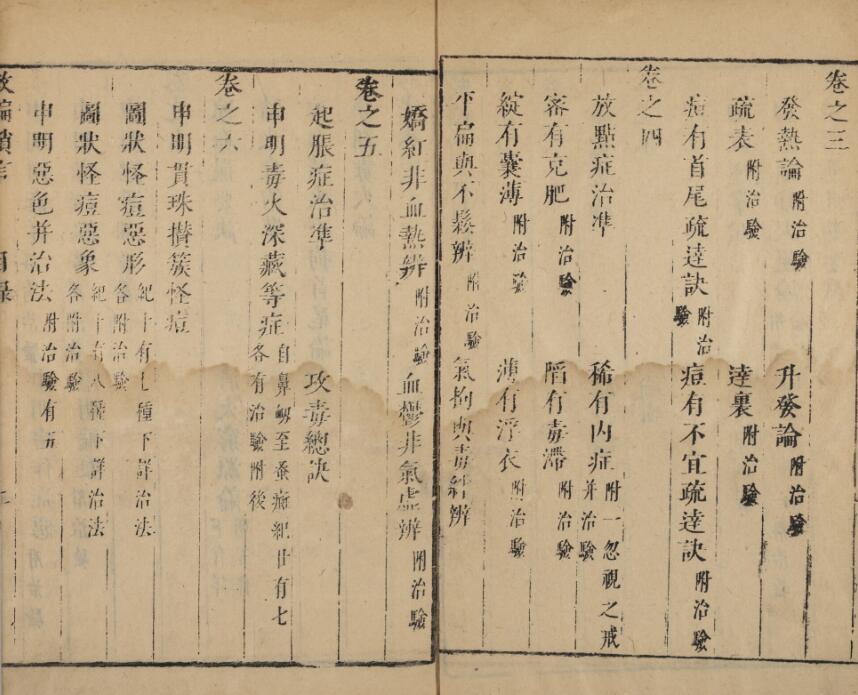 卷之三
發熱論附治驗 升發論附治驗
疏表附治驗 達裏附治驗
痘有首尾疏達訣附治驗 痘有不宜疏達訣附治驗
卷之四
放點症治準 稀有內症附一忽視之戒并治驗
密有克肥附治驗 陷有毒滯附治驗
綻有囊薄附治驗 薄有浮衣附治驗
平扁與不鬆辨附治驗 氣拘與毒結辨
嬌紅非血熱辨附治驗 血鬱非氣虛辨附治驗
卷之五
起脹症治準 攻毒總訣
申明毒火深藏等症自鼻衂至蚕痂紀廿有七各有治驗附後
卷之六
申明貫珠攅簇怪痘
圖狀怪痘惡形紀十有七種下詳治法各附治驗
圖狀怪痘惡象紀十有八種下詳治法各附治驗
申明惡色并治法附治驗有五
目錄